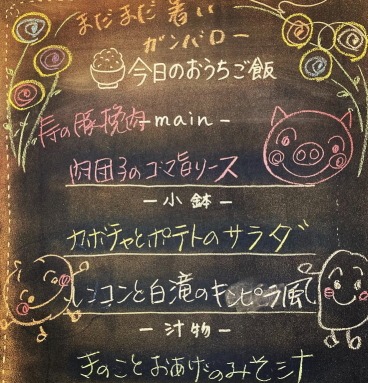 まだまだ暑い
ガンバロー
今日のおうちご飯
寿の豚挽肉
-main-
肉団子のゴマ旨ソース
-小鉢-
カボチャとポテトのサラダ
レンコンと白滝のキンピラ風
-汁物-
きのことおあげのみそ汁